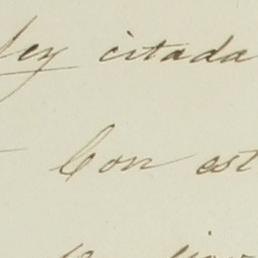 ley citada
Con est